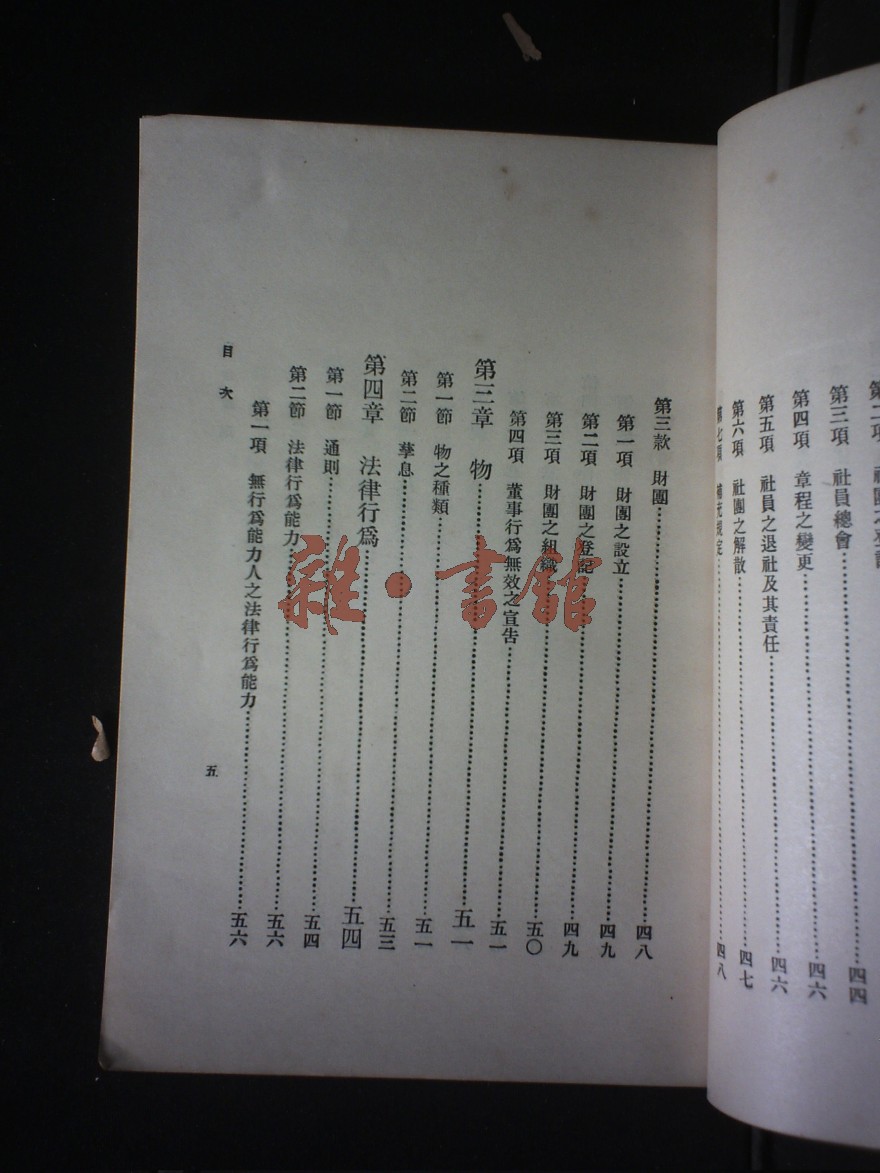 第三項　社員總會……四四
第四項　章程之變更……四六
第五項　社員之退社及其責任……四六
第六項　社團之解散……四七
第七項　補充規定……四八
第三款　財團……四八
第一項　財團之設立……四九
第二項　財團之登記……四九
第三項　財團之組織……五〇
第四項　董事行爲無效之宣告……五一
第三章　物……五一
第一節　物之種類……五一
第二節　孳息……五三
第四章　法律行爲……五四
第一節　通則……五四
第二節　法律行爲能力……五六
第一項　無行爲能力人之法律行爲能力……五六
目次
五
雜·書館